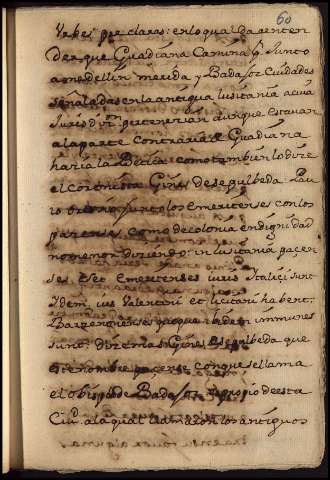 60
Urbes preclaras: en lo qual da a enten
der que Guadiana Camina q Junto
a medellin merida y Badajoz Ciudades
señaladas en la antigua lusitania a cuia
Juris dizn. pertenezian aunque estavan
a la parte contraria de Guadiana
hazia la Betica como tambien lo dize
el coronista Gines de sepulbeda
Junto los Emeritenses con los
pacenses, como de colonia en dignidad
no menor diziendo: in lusitania pacen
ses, et Emeritenses iuris Italici sunt
Idem ius Valentini et licitani habent:
Barzenonenses quoque ibidem immunes
sunt: dize mas Gines de sepulbeda que
este nombre pacense con que se llama
el obispo de Badajoz es propio de esta
Ciud. a la qual llamaron los antiguos